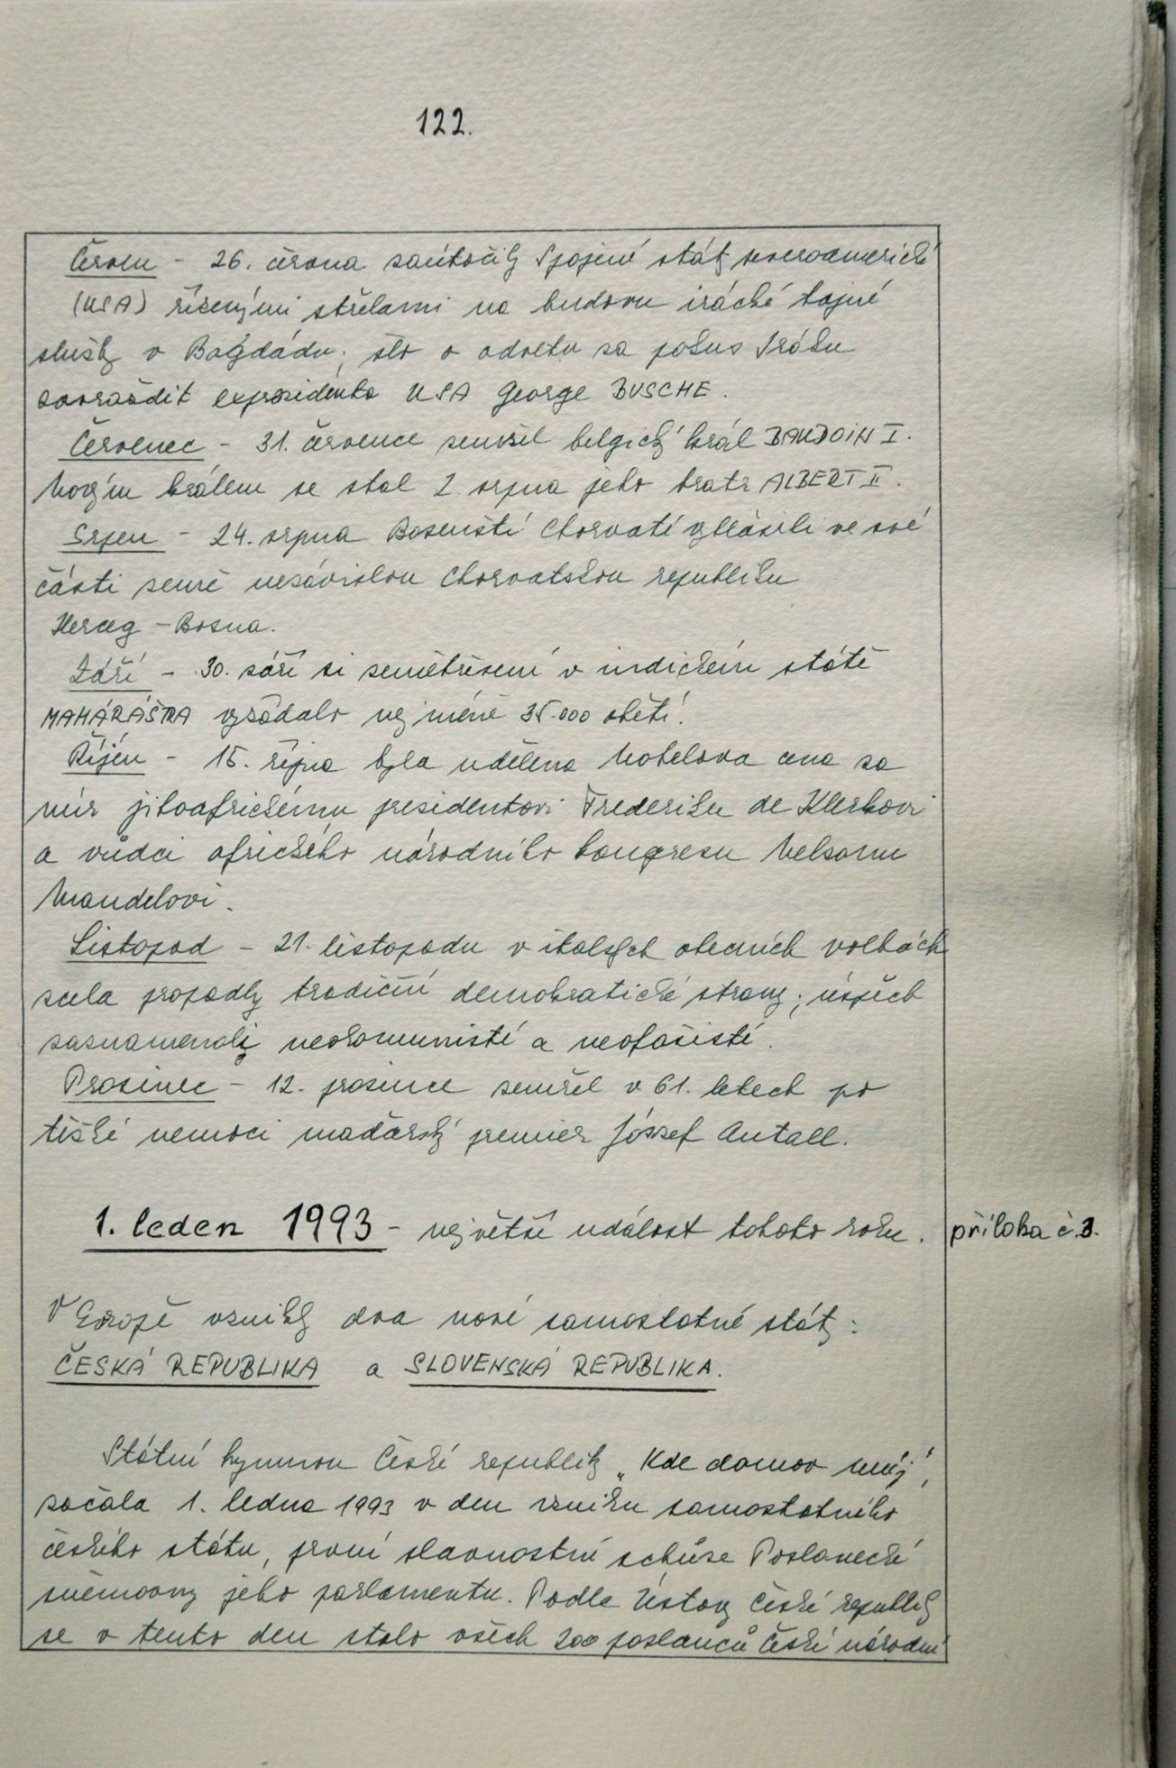 122.
Červen - 26. června zaútočily Spojené státy severoamerické
(USA) řízenými střelami na budovu irácké tajné
služby v Bagdádu; šlo o odvetu za pokus Iráku
zavraždit exprezidenta USA George BUSCHE.
Červenec - 31. července zemřel belgický král BAUDOIN I.
Novým králem se stal 2. srpna jeho bratr ALBERT II.
Srpen - 24. srpna Bosenští Chorvati vyhlásili ve své
části země nezávislou Chorvatskou republiku
Herceg - Bosna.
Září - 30. září si zemětřesení v indickém státě
MAHÁRÁŠTRA vyžádalo nejméně 35.000 obětí.
Říjen - 15. října byla udělena Nobelova cena za
mír jihoafrickému presidentovi Frederiku de Klerkovi
a vůdci afrického národního kongresu Nelsonu
Mandelovi.
Listopad - 21. listopadu v italských obecních volbách
zcela propadly tradiční demokratické strany; úspěch
zaznamenali neokomunisté a neofašisté.
Prosinec - 12. prosince zemřel v 61. letech po
těžké nemoci maďarský premiér József Antall.
1. leden 1993 - největší událost tohoto roku. příloha č.3.
V Evropě vznikly dva nové samostatné státy:
ČESKÁ REPUBLIKA a SLOVENSKÁ REPUBLIKA.
Státní hymnou České republiky „Kde domov můj",
začala 1. ledna 1993 v den vzniku samostatného
českého státu, první slavnostní schůze Poslanecké
sněmovny jeho parlamentu. Podle Ústavy České republiky
se v tento den stalo všech 200 poslanců České národní